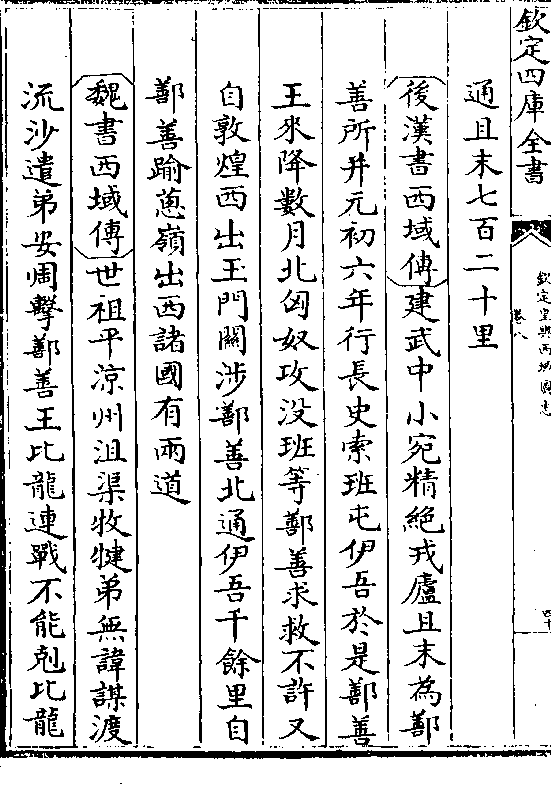 欽定四庫全書
欽定皇輿西域圖志
卷八
四十
通且末七百二十里
後漢書西域傳建武中小宛精絶戎廬且末為鄯
善所并元初六年行長史索班屯伊吾於是鄯善
王來降數月北匈奴攻没班等鄯善求救不許又
自敦煌西出玉門關涉鄯善北通伊吾千餘里自
鄯善踰蔥嶺出西諸國有兩道
魏書西域傳世祖平涼州沮渠牧犍弟無諱謀渡
流沙遣弟安周擊鄯善王比龍連戰不能剋比龍